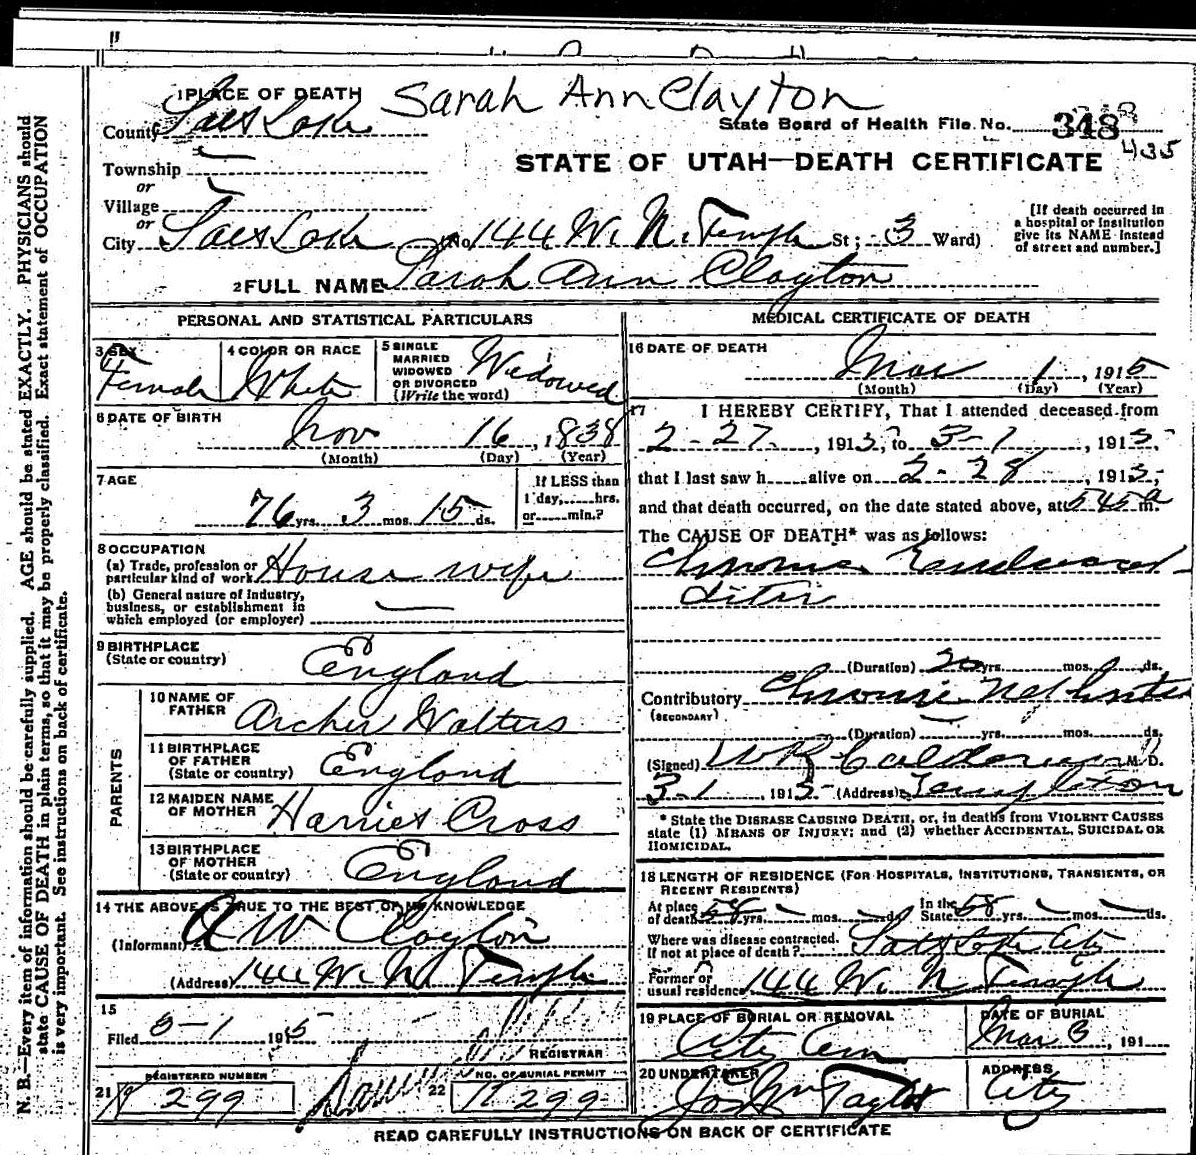 1 PLACE OF DEATH Sarah Ann Clayton
County Salt Lake State Board of Health File No. 348
435
STATE OF UTAH—DEATH CERTIFICATE
Township
or
Village
or
City Salt Lake (No. 144 W. N. Temple St; 3 Ward)
[If death occurred in
a hospital or institution
give its NAME instead
of street and number.]
2 FULL NAME Sarah Ann Clayton
PERSONAL AND STATISTICAL PARTICULARS
3 SEX Female
4 COLOR OR RACE White
5 SINGLE
MARRIED
WIDOWED
OR DIVORCED
(Write the word) Widowed
6 DATE OF BIRTH
Nov 16, 1838
(Month) (Day) (Year)
7 AGE
76 yrs. 3 mos. 15 ds.
If LESS than
1 day,......hrs.
or......min.?
8 OCCUPATION
(a) Trade, profession or
particular kind of work House wife
(b) General nature of industry,
business, or establishment in
which employed (or employer)
9 BIRTHPLACE
(State or country) England
PARENTS
10 NAME OF
FATHER Archer Walters
11 BIRTHPLACE
OF FATHER
(State or country) England
12 MAIDEN NAME
OF MOTHER Harriet Cross
13 BIRTHPLACE
OF MOTHER
(State or country) England
14 THE ABOVE IS TRUE TO THE BEST OF MY KNOWLEDGE
(Informant) A W Clayton
(Address) 144 W. N. Temple
15
Filed 3-1 1915
REGISTRAR
21 REGISTERED NUMBER
299
22 NO. OF BURIAL PERMIT
299
MEDICAL CERTIFICATE OF DEATH
16 DATE OF DEATH
Mar 1, 1915
(Month) (Day) (Year)
17 I HEREBY CERTIFY, That I attended deceased from
2-27, 1915, to 3-1, 1915,
that I last saw h......alive on 2-28, 1915,
and that death occurred, on the date stated above, at 545 a m.
The CAUSE OF DEATH* was as follows:
Chronic Endocar-
ditis
(Duration) 20 yrs. mos. ds.
Contributory Chronic Nephritis
(SECONDARY)
(Duration) yrs. mos. ds.
(Signed) W R Calderwood M.D.
3-1, 1915 (Address) Templeton
* State the DISEASE CAUSING DEATH, or, in deaths from VIOLENT CAUSES
state (1) MEANS OF INJURY; and (2) whether ACCIDENTAL, SUICIDAL OR
HOMICIDAL.
18 LENGTH OF RESIDENCE (FOR HOSPITALS, INSTITUTIONS, TRANSIENTS, OR
RECENT RESIDENTS)
At place
of death 58 yrs. mos. ds. In the
State 58 yrs. mos. ds.
Where was disease contracted.
If not at place of death? Salt Lake City
Former or
usual residence 144 W. N Temple
19 PLACE OF BURIAL OR REMOVAL
City Cem
DATE OF BURIAL
Mar 3, 191
20 UNDERTAKER
Jos Wm Taylor
ADDRESS
City
READ CAREFULLY INSTRUCTIONS ON BACK OF CERTIFICATE
N. B.—Every item of information should be carefully supplied. AGE should be stated EXACTLY. PHYSICIANS should
state CAUSE OF DEATH in plain terms, so that it may be properly classified. Exact statement of OCCUPATION
is very important. See instructions on back of certificate.